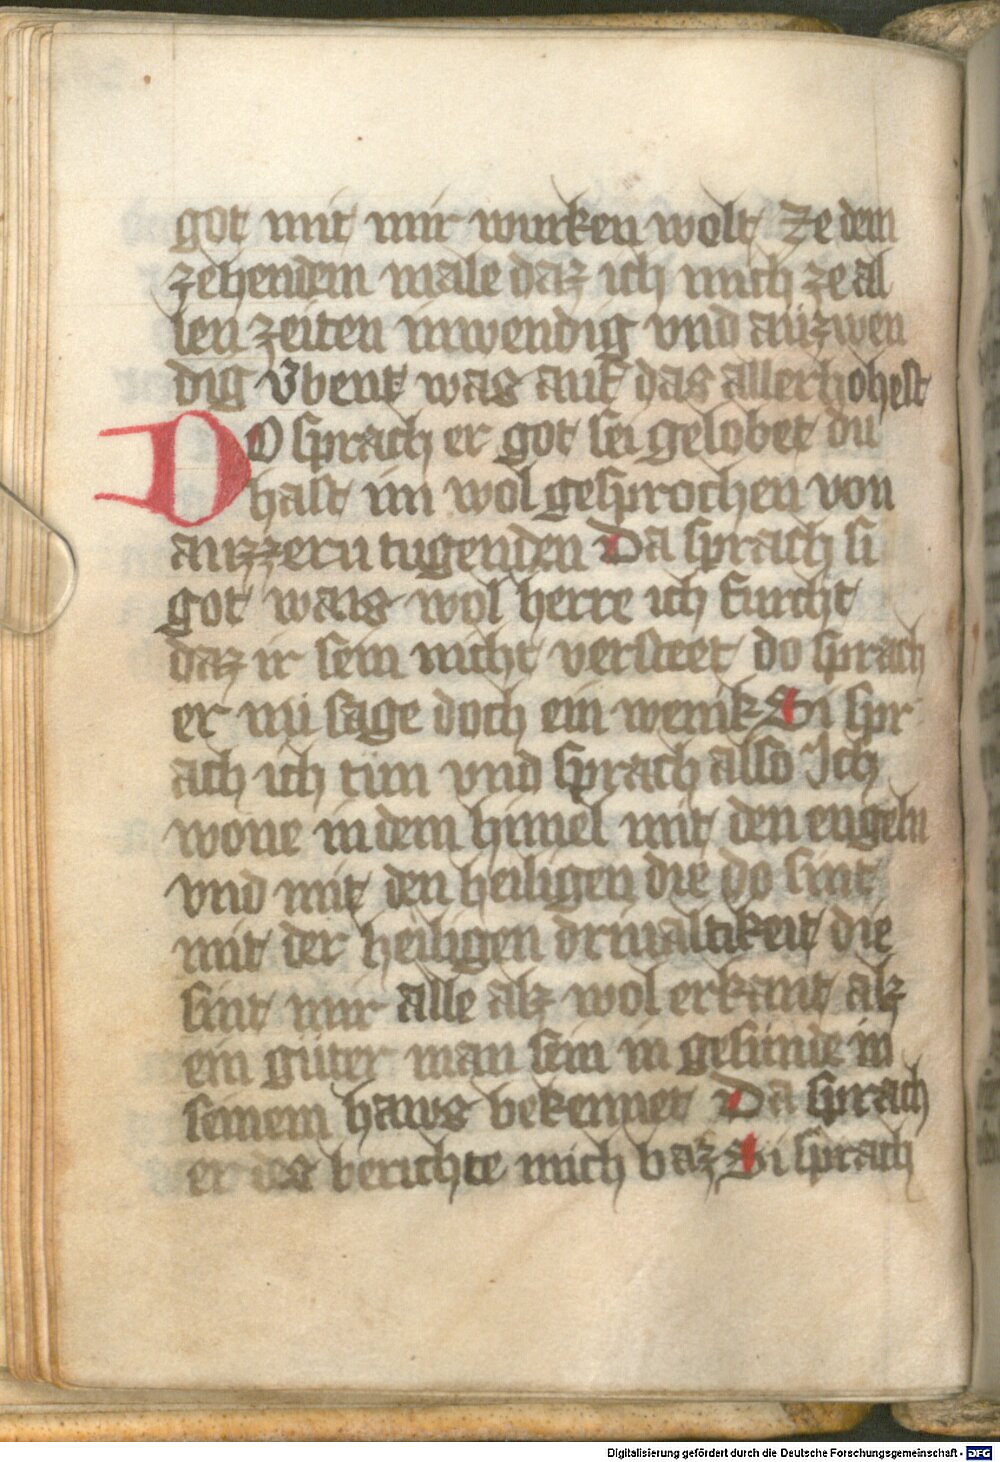 got mit mir wurken wolt Ze dem
zehendem male daz ich mich ze al
len zeiten inwendig vnd auzwen
dig vbent was auf das allerhohest
DO sprach er got sei gelobet du
hast im wol gesprochen von
auzzern tugenden Da sprach si
got wais wol herre ich furcht
daz ir sein nicht versteet do sprach
er nu sage doch ein wenik Si spr
ach ich tun vnd sprach also Ich
wone in dem himel mit den engeln
vnd mit den heiligen die do sint
mit der heiligen drivaltikeit die
sint mir alle alz wol erkant alz
ein guter man sein in gesinde in
seinem haws bekennet Da sprach
er des berichte mich baz Si sprach
Digitalisierung gefördert durch die Deutsche Forschungsgemeinschaft - DFG